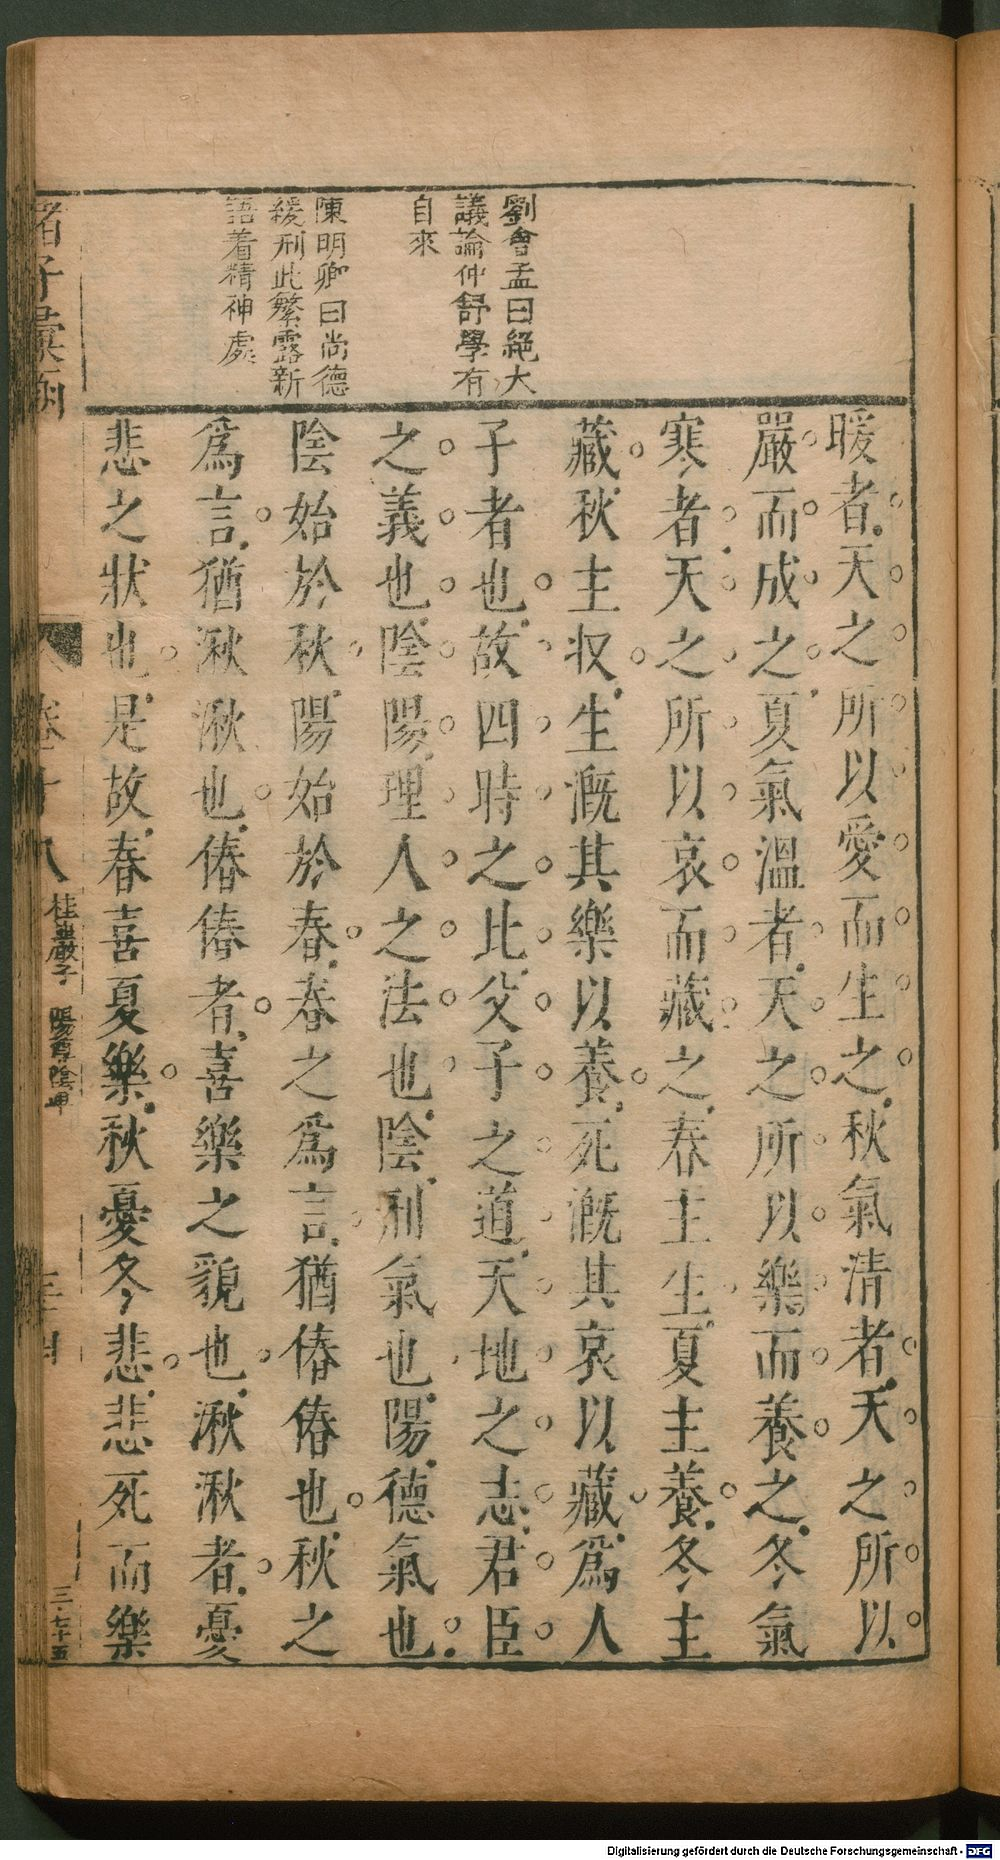 劉會孟曰絕大
議論仲舒學有
自來
陳明卿曰尚德
緩刑此繁露新
語着精神處
暖者天之所以愛而生之秋氣清者天之所以
嚴而成之夏氣溫者天之所以樂而養之冬氣
寒者天之所以哀而藏之春主生夏主養冬主
藏秋主収生漑其樂以養死漑其哀以藏爲人
子者也故四時之比父子之道天地之志君臣
之義也陰陽理人之法也陰刑氣也陽德氣也
陰始於秋陽始於春春之爲言猶偆偆也秋之
爲言猶湫湫也偆偆者喜樂之貌也湫湫者憂
悲之狀也是故春喜夏樂秋憂冬悲悲死而樂
諸子彙函
卷十八
桂巖子 陽尊陰卑
三十四
三七十五
Digitalisierung gefördert durch die Deutsche Forschungsgemeinschaft - DFG